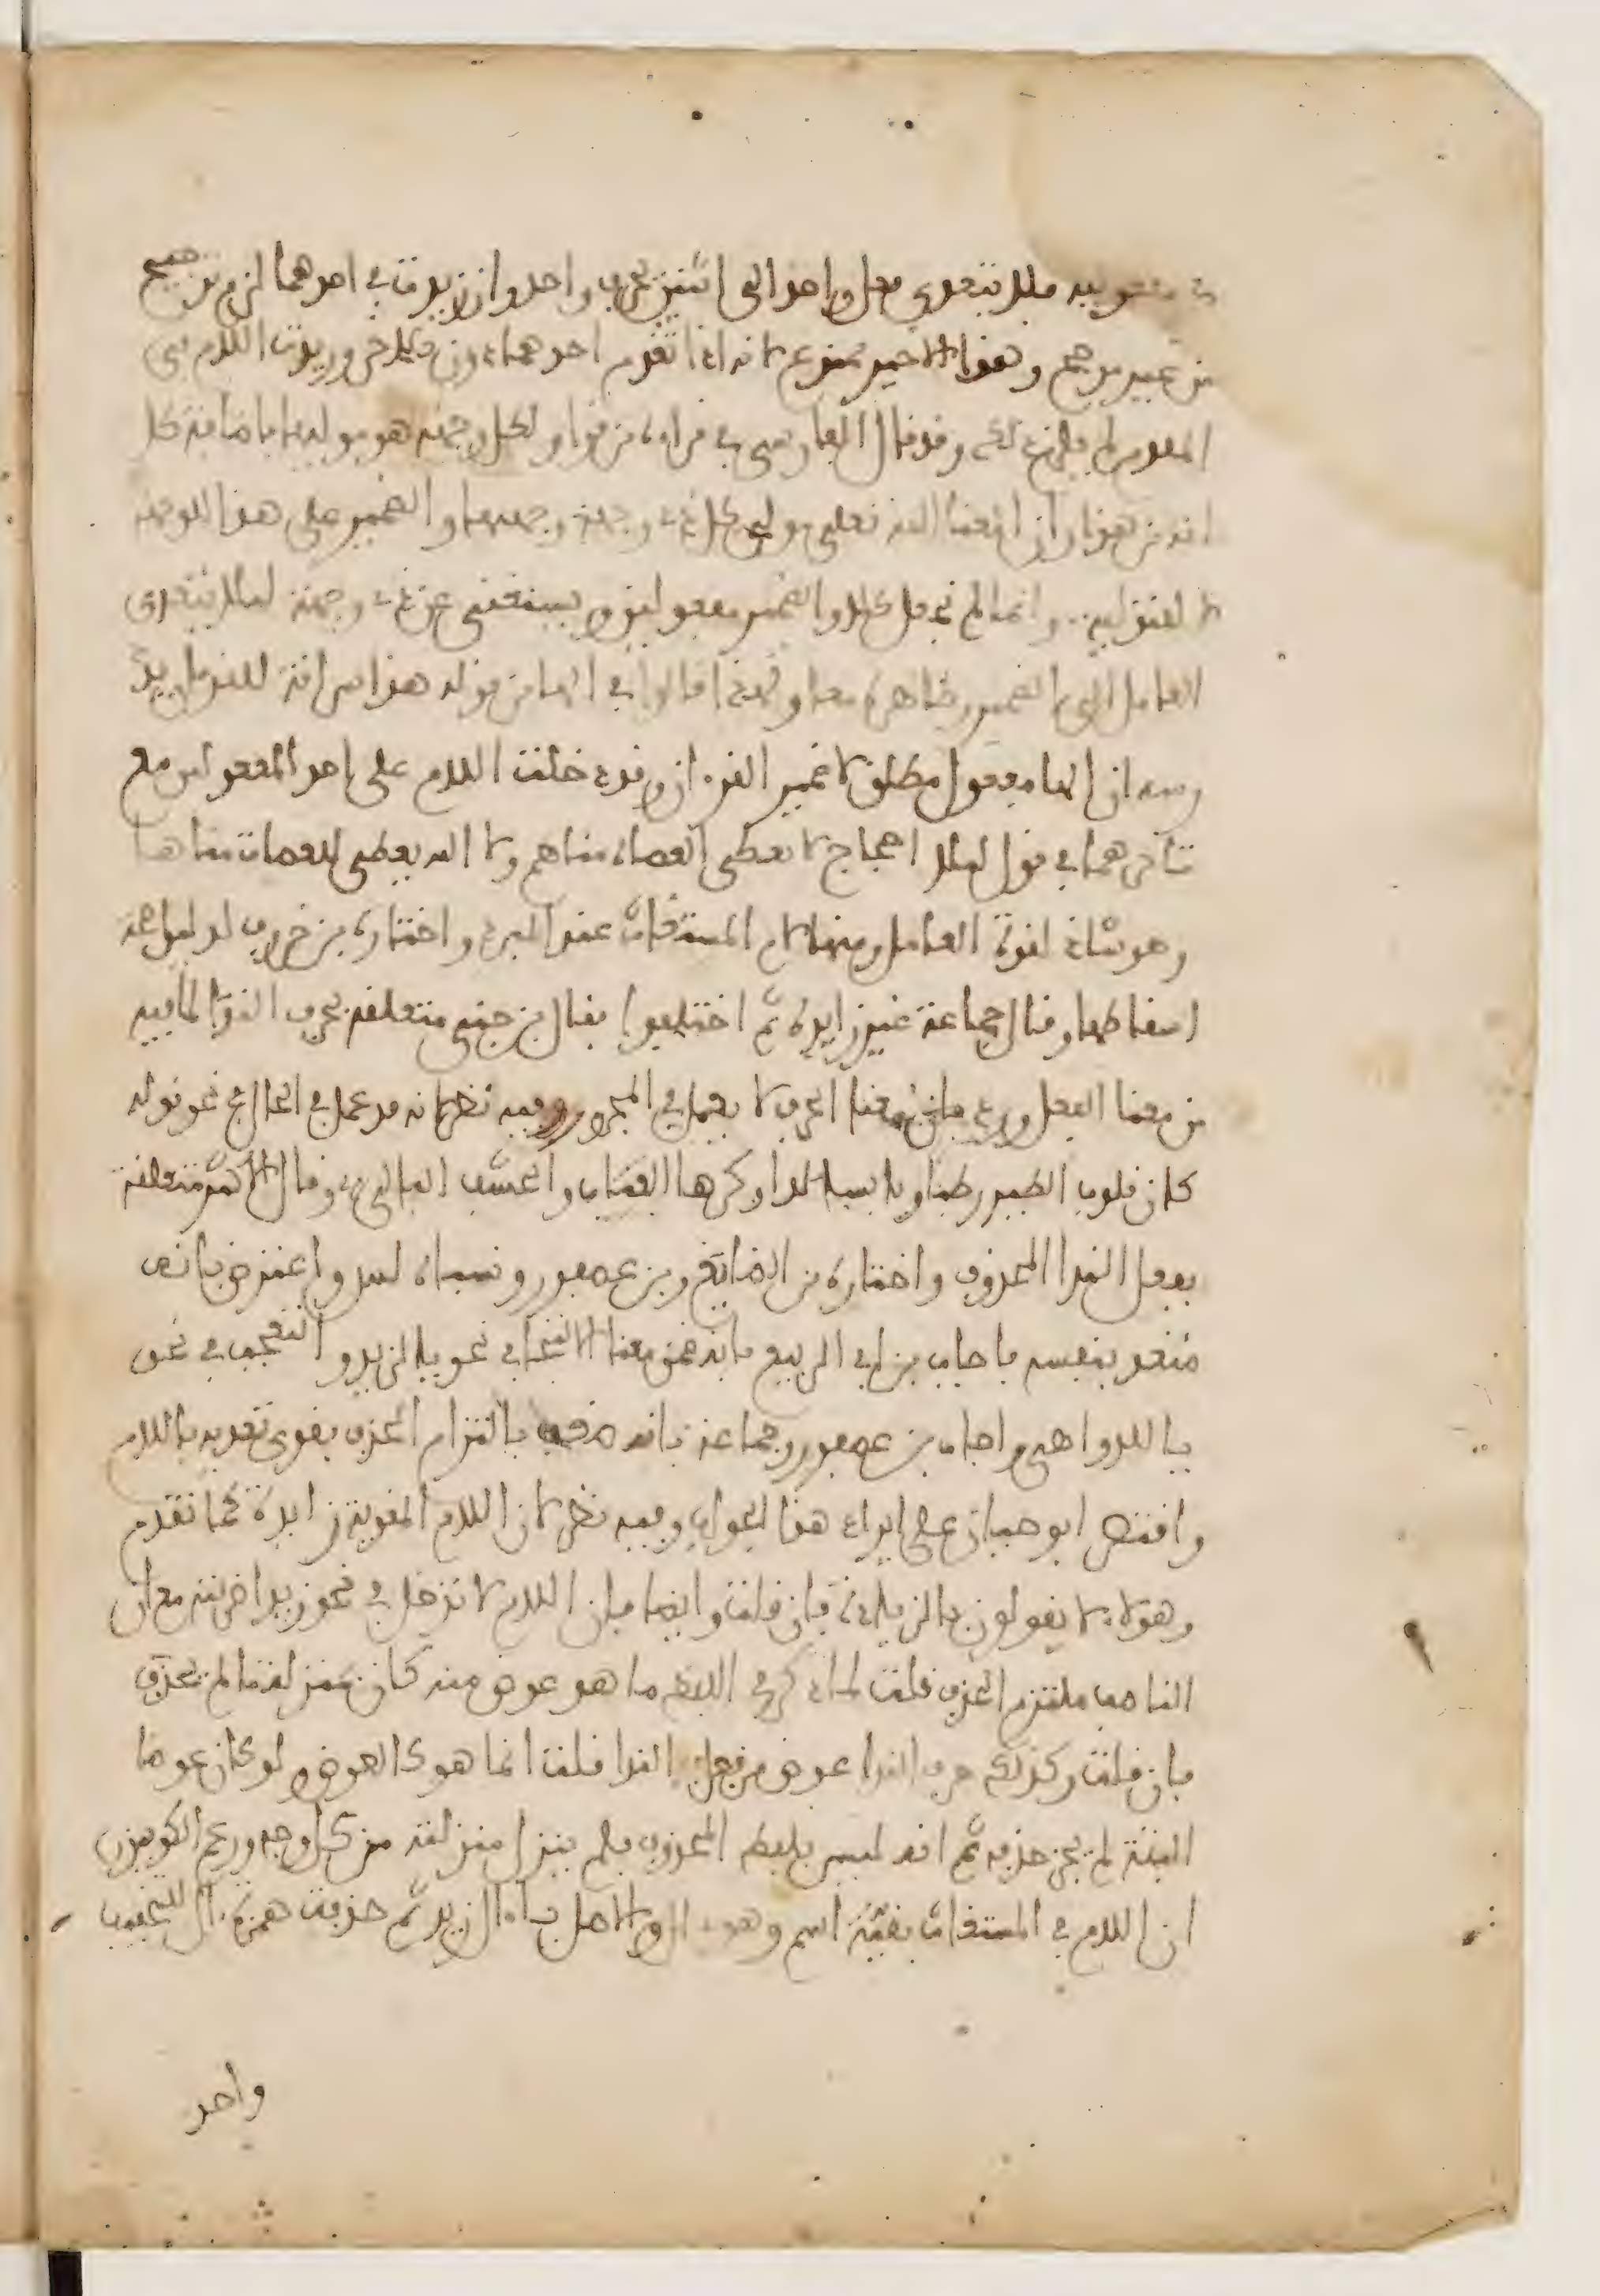 في مفعوليه فلا يتعدى فعل واحد الى اثنين بحرف واحد وان زيدت في احدهما لزم ترجيح
من غير مرجح وهذا الاخير ممنوع لانه اذا تقدم احدهما دون الاخر وزيدت اللام في
المقدم لم يلزم ذلك وقد قال الفارسي في قراءة من قرا ولكل وجهة هو موليها باضافة كل
انه من هذا وان المعنا الله تعلى مولي كل ذي وجهة وجهته والضمير على هذا للوجهة
لا للتولية وانما لم نجعل كلا والضمير مفعولين ويستغنى عن ذي وجهة ليلا يتعدى
العامل الى الضمير وظاهره معا ولهذا قالوا في الها من قوله هذا سراقة للقرءان يدرسه
ان الها مفعول مطلق لا ضمير القرءان وقد دخلت اللام على احد المفعولين مع
تاخرهما في قول ليلا احجاج لا تعطي العصاة مناهم ولا الله يعطي للعصات مناها
وهو شاذ لقوة العامل ومنها لام المستغاث عند المبرد واختاره بن خروف بدليل صحة
اسقاطها وقال جماعة غير زايدة ثم اختلفوا فقال بن جني متعلقة بحرف الندا لما فيه
من معنا الفعل ورد بان معنا الحرف لا يعمل في المجرور وفيه نظر لانه قد عمل في الحال في نحو قوله
كان قلوب الطير رطبا ويابسا لدا وكرها العناب والحشف البالي وقال الاكثر متعلقة
بفعل الندا المحذوف واختاره بن الضايع وبن عصفور ونسباه لس واعترض بانه
متعد بنفسه فاجاب بن ابي الربيع بانه ضمن معنا الالتجا في نحو يا لزيد والتعجب في نحو
يا للدواهي واجاب بن عصفور وجماعة بانه ضعف بالتزام الحذف بقوي تعديه باللام
واقتصر ابو حيان على ايراد هذا الجواب وفيه نظر لان اللام المقوية زايدة كما تقدم
وهؤلاء لا يقولون بالزيادة فان قلت وايضا فان اللام لا تدخل في نحو زيدا ضربته مع ان
الناصب ملتزم الحذف قلت لما ذكر في اللفظ ما هو عوض منه كان بمنزلة ما لم يحذف
فان قلت وكذلك حرف الندا عوض من فعل الندا قلت انما هو كالعوض ولو كان عوضا
البتة لم يجز حذفه ثم انه ليس بلفظ المحذوف فلم ينزل منزلته من كل وجه وزعم الكوفيون
ان اللام في المستغاث بقية اسم وهو ال والاصل يا ءال زيد ثم حذفت همزة ءال للتخفيف
واحد